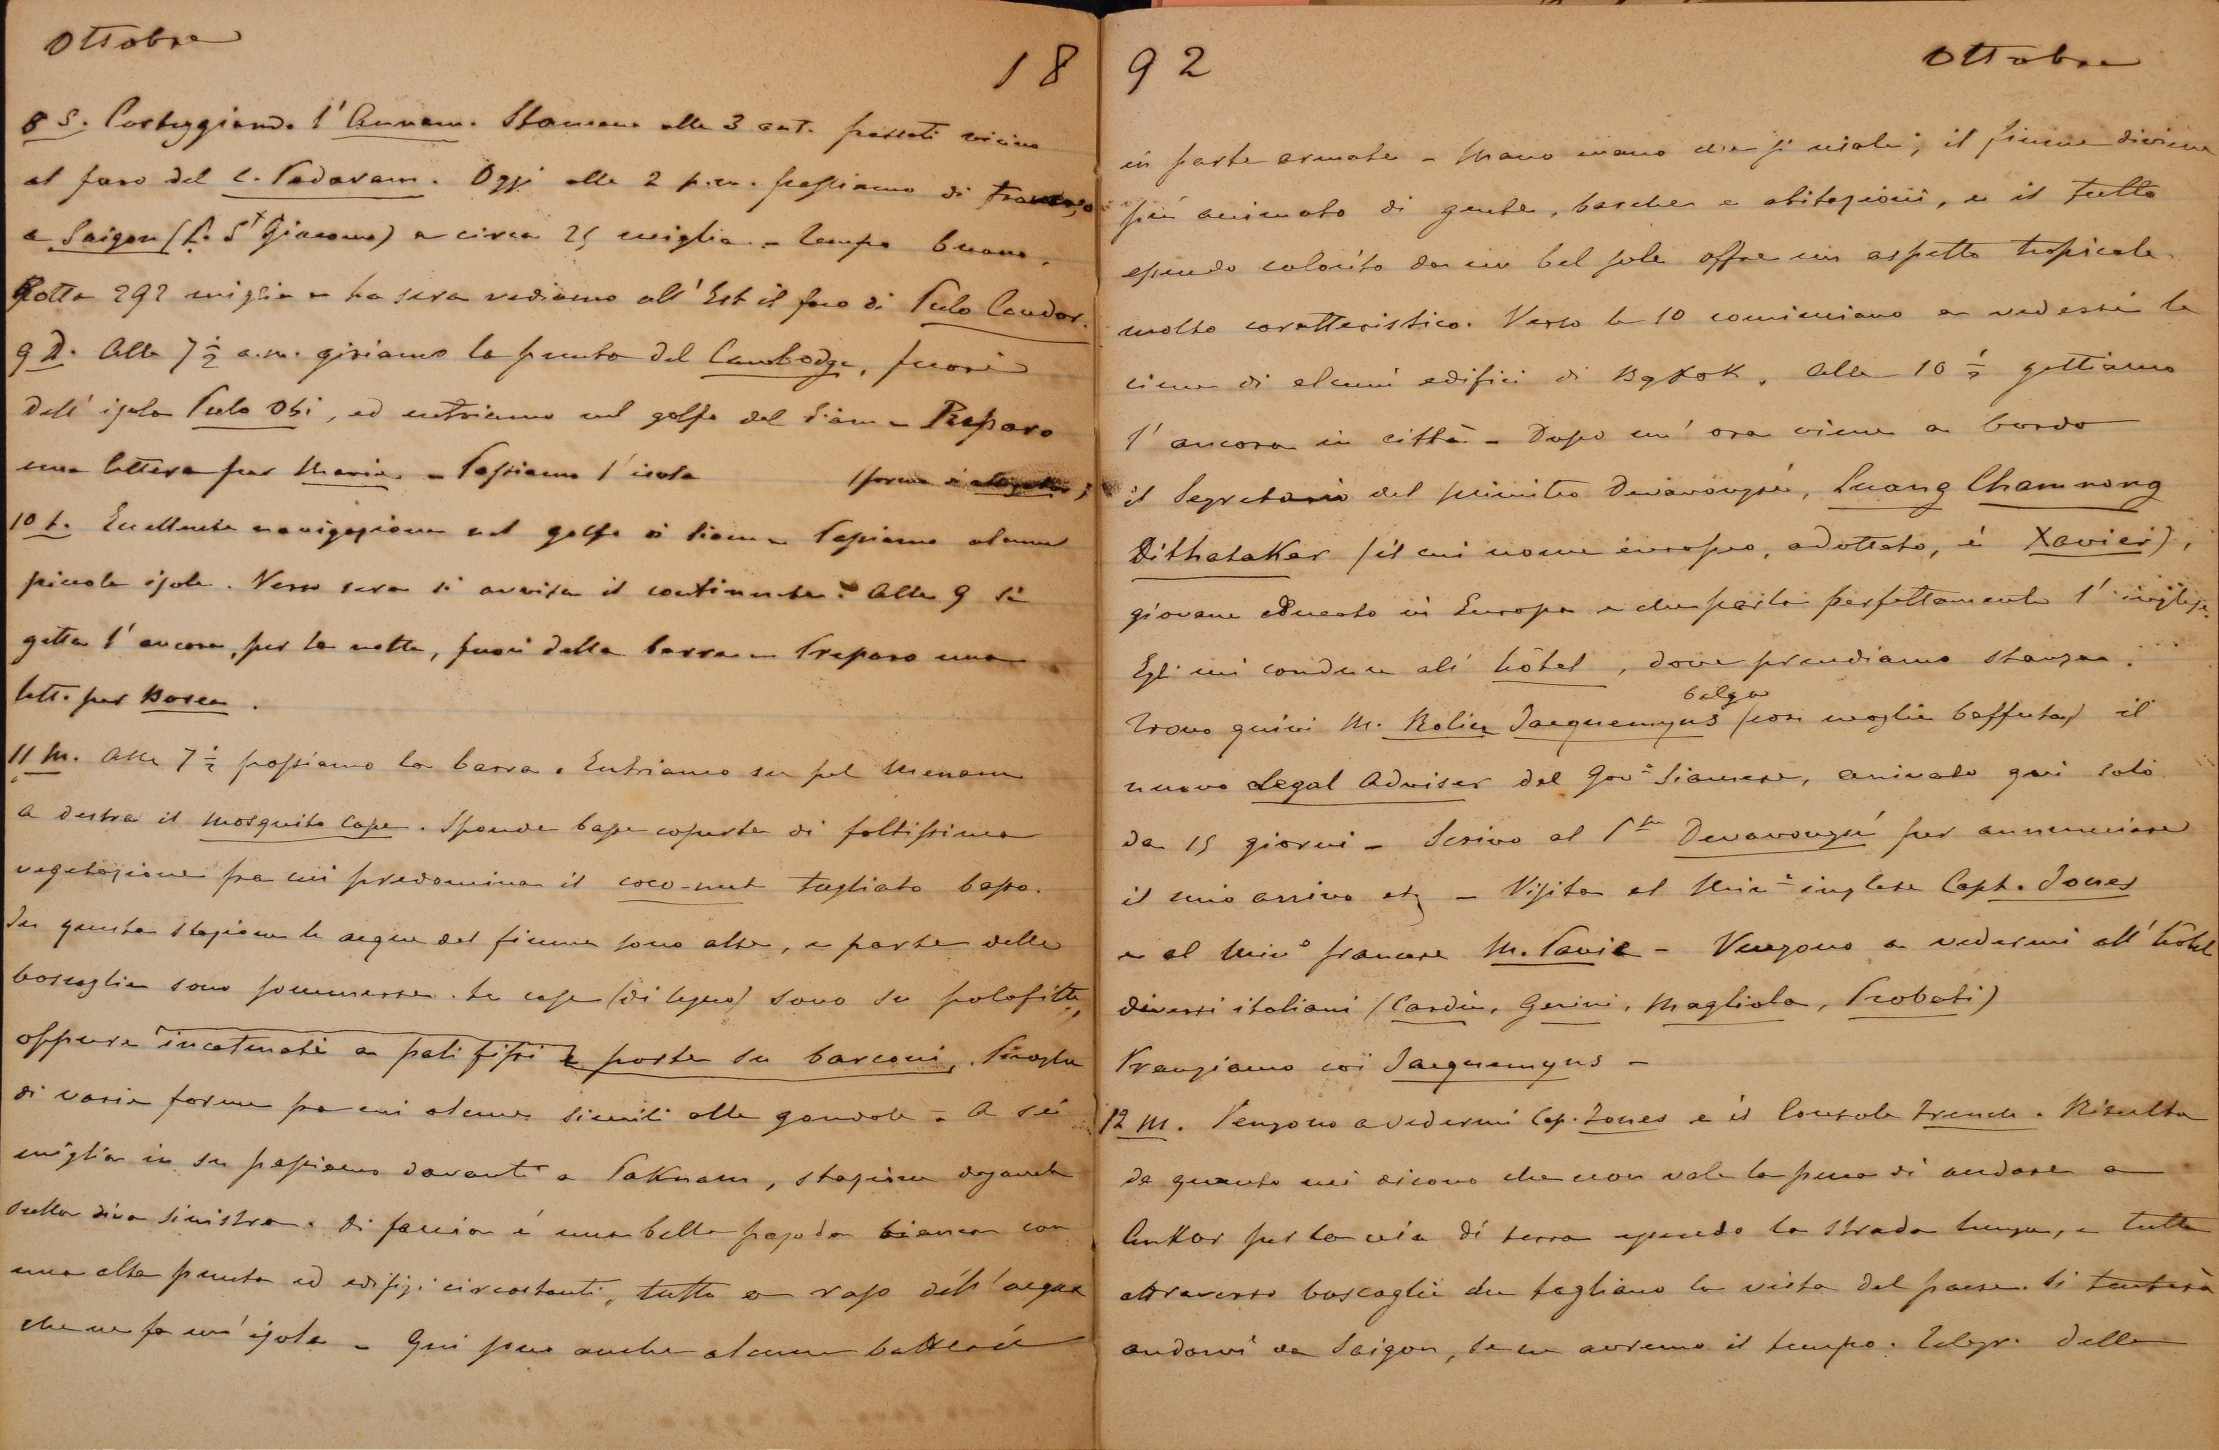 Ottobre
18
8 S. Costeggiando l'Annam. Stamane alle 3 ant. passati vicino
al faro del C. Padaram. Oggi alle 2 p.m. passiamo di traverso
a Saigon (C. St Giacomo) a circa 25 miglia. - Tempo buono.
Rotta 292 miglia - La sera vediamo all'Est il faro di Pulo Condor.
9 D. Alle 7 1/2 a.m. giriamo la punta del Cambodge, fuori
dell'isola Pulo Obi, ed entriamo nel golfo del Siam - Preparo
una lettera per Maria. - Passiamo l'isola
10 L. Eccellente navigazione nel golfo di Siam - Passiamo alcune
piccole isole. Verso sera si avvista il continente. Alle 9 si
getta l'ancora, per la notte, fuori della barra - Preparo una
lett. per Bosca.
11 M. Alle 7 1/2 passiamo la barra. Entriamo su pel Menam
A destra il Mosquito Cape. Sponde basse coperte di foltissima
vegetazione fra cui predomina il coco-nut tagliato basso.
In questa stagione le acque del fiume sono alte, e parte delle
boscaglie sono sommerse. Le case (di legno) sono su palafitte,
oppure incatenate a pali fissi e poste su barconi. Piroghe
di varie forme fra cui alcune simili alle gondole - A sei
miglia in su passiamo davanti a Paknam, stazione doganale
sulla riva sinistra. Di faccia è una bella pagoda bianca con
una alta punta ed edifizi circostanti, tutta a raso dell'acqua
che ne fa un'isola - Qui pure anche alcune batterie
92
Ottobre
in parte armate - Mano mano che si risale, il fiume diviene
più animato di gente, barche e abitazioni, e il tutto
essendo colorito da un bel sole offre un aspetto tropicale
molto caratteristico. Verso le 10 cominciano a vedersi le
cime di alcuni edifici di Bgkok. Alle 10 1/2 gettiamo
l'ancora in città - Dopo un'ora viene a bordo
il Segretario del ministro Devavongsé, Luang Chamnong
Dithatakar (il cui nome europeo, adottato, è Xavier),
giovane educato in Europa e che parla perfettamente l'inglese.
Egli mi conduce all'hôtel, dove prendiamo stanza.
belga
Trovo quivi M. Rolin Jaequemyns (con moglie baffuta) il
nuovo Legal Adviser del Govo Siamese, arrivato qui solo
da 15 giorni - Scrivo al Pe Devavongsé per annunciare
il mio arrivo etc - Visita al Mino inglese Capt. Jones
e al Mino francese M. Pavie - Vengono a vedermi all'hôtel
diversi italiani (Cardu, Gerini, Magliola, Trobati)
Pranziamo coi Jaequemyns -
12 M. Vengono a vedermi Cap. Jones e il Console French. Risulta
da quanto mi dicono che non vale la pena di andare a
Ankor per la via di terra essendo la strada lunga, e tutta
attraverso boscaglie che tagliano la vista del paese. Si tenterà
andarvi da Saigon, se ne avremo il tempo. Telegr. dalla